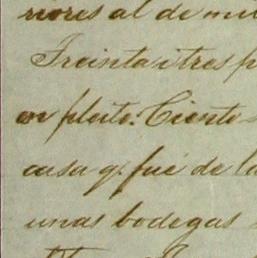 riores al de mil
Treinta i tres p
en pleito: Ciento
casa q. fué de la
unas bodegas